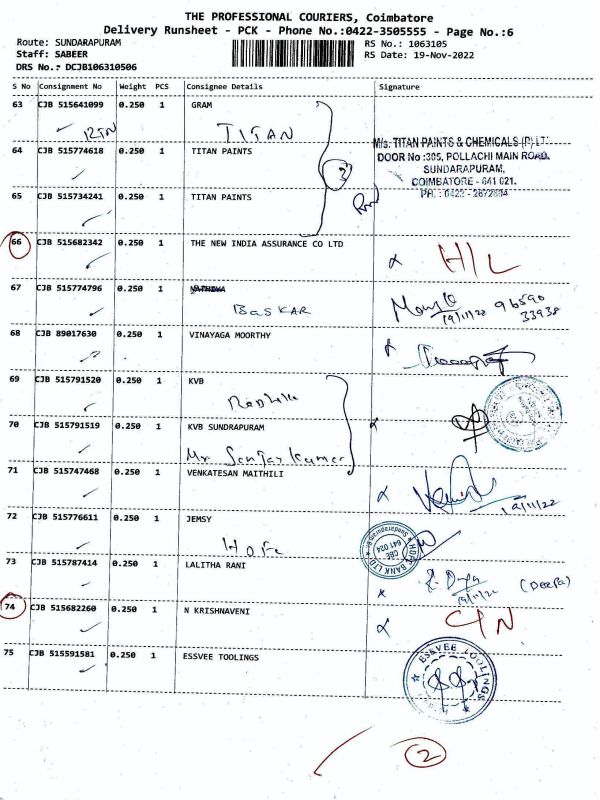 THE PROFESSIONAL COURIERS, Coimbatore
Delivery Runsheet - PCK - Phone No.:0422-3505555 - Page No.:6
Route: SUNDARAPURAM
RS No.: 1063105
Staff: SABEER
RS Date: 19-Nov-2022
DRS No.: DCJB106310506
S No Consignment No Weight PCS Consignee Details Signature
63 CJB 515641099 0.250 1 GRAM
TITAN
M/s. TITAN PAINTS & CHEMICALS (P) LT
64 CJB 515774618 0.250 1 TITAN PAINTS
DOOR No :305, POLLACHI MAIN ROAD.
SUNDARAPURAM,
COIMBATORE - 641 021.
65 CJB 515734241 0.250 1 TITAN PAINTS
PH. : 0422 - 2672684
66 CJB 515682342 0.250 1 THE NEW INDIA ASSURANCE CO LTD
H/L
67 CJB 515774796 0.250 1
BASKAR
19/11/22 96590
33938
68 CJB 89017630 0.250 1 VINAYAGA MOORTHY
69 CJB 515791520 0.250 1 KVB
70 CJB 515791519 0.250 1 KVB SUNDRAPURAM
Mr Sanjay Kumar
71 CJB 515747468 0.250 1 VENKATESAN MAITHILI
19/11/22
72 CJB 515776611 0.250 1 JEMSY
HDFC
HDFC BANK LTD
CBE
641 024
73 CJB 515787414 0.250 1 LALITHA RANI
19/11/22 (Deepa)
74 CJB 515682260 0.250 1 N KRISHNAVENI
75 CJB 515591581 0.250 1 ESSVEE TOOLINGS
ESSVEE TOOLINGS
2